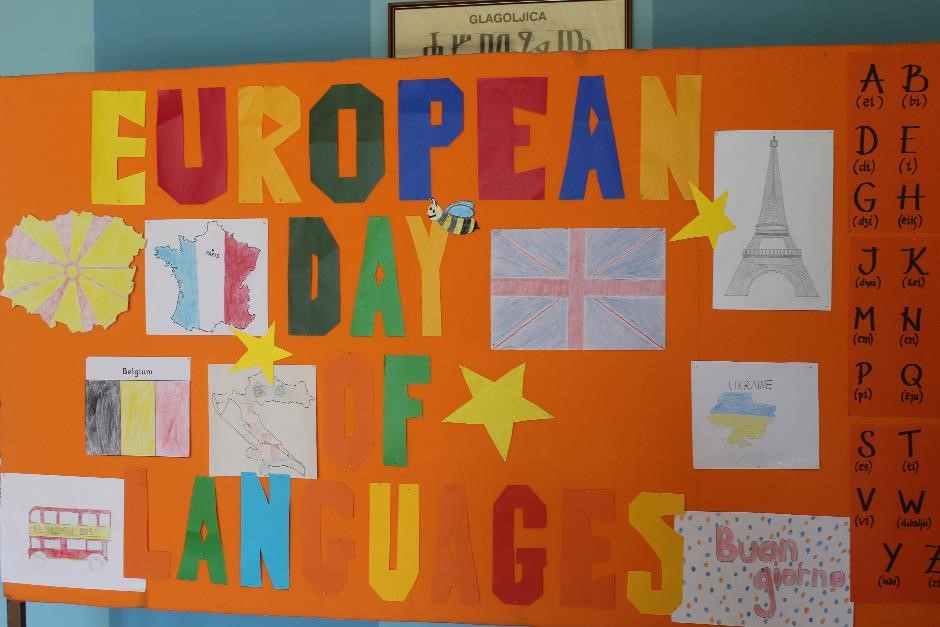 GLAGOLJICA
EUROPEAN
DAY
OF
LANGUAGES
PARIS
Belgium
UKRAINE
Buon
giorno
A B
(ei) (bi)
D E
(di) (i)
G H
(dʒi) (eitʃ)
J K
(dʒei) (kei)
M N
(em) (en)
P Q
(pi) (kju)
S T
(es) (ti)
V W
(vi) (dabalju)
Y Z
(wai)